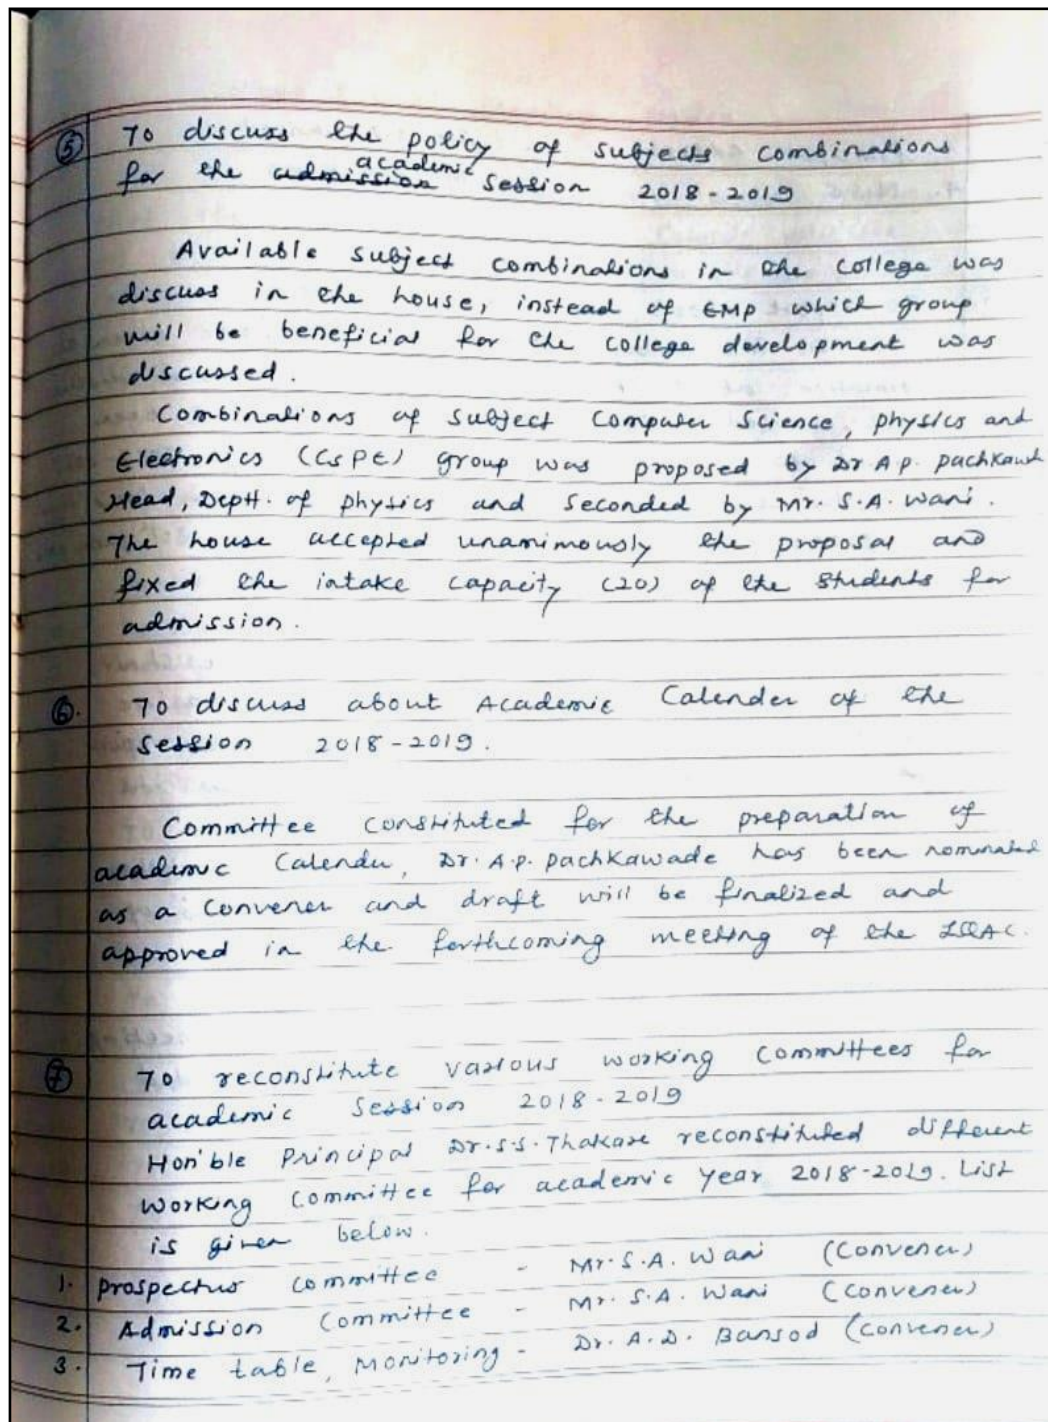 ⑤ To discuss the policy of subjects combinations
for the admission academic session 2018-2019
Available subject combinations in the college was
discuss in the house, instead of EMP which group
will be beneficial for the college development was
discussed.
Combinations of subject Computer Science, physics and
Electronics (CSPE) group was proposed by Dr A.P. pachkawade
Head, Deptt. of physics and seconded by Mr. S.A. Wani.
The house accepted unanimously the proposal and
fixed the intake capacity (20) of the students for
admission.
⑥. To discuss about Academic Calender of the
Session 2018-2019.
Committee constituted for the preparation of
academic Calender, Dr. A.p. pachkawade has been nominated
as a convener and draft will be finalized and
approved in the forthcoming meeting of the IQAC.
⑦ To reconstitute various working committees for
academic Session 2018-2019
Hon'ble Principal Dr.S.S. Thakare reconstituted different
working committee for academic year 2018-2019. List
is given below.
1. prospectus committee - Mr. S.A. Wani (Convener)
2. Admission Committee - Mr. S.A. Wani (Convener)
3. Time table, Monitoring - Dr. A.D. Bansod (Convener)